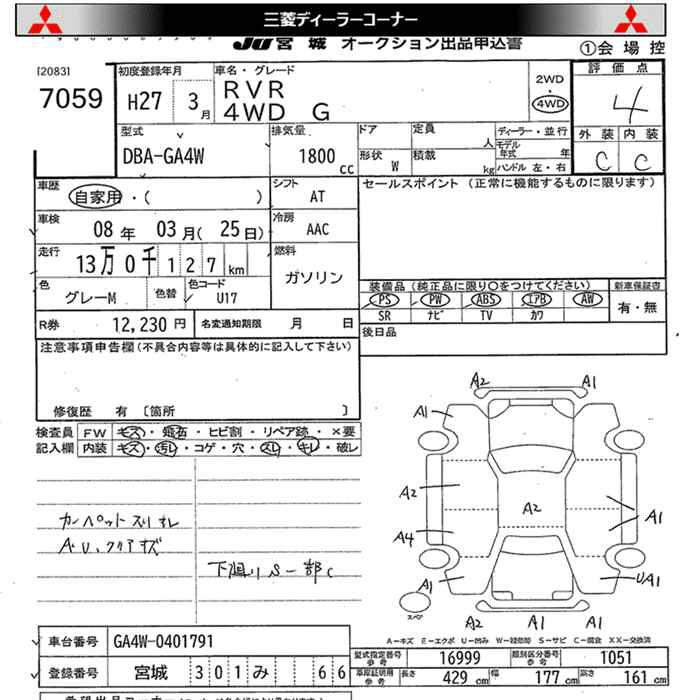 三菱ディーラーコーナー
JU宮城 オークション出品申込書
①会場控
[2083]
7059
初度登録年月
H27 3月
車名・グレード
RVR
4WD G
2WD
・
4WD
評価点
4
外装 内装
C C
型式
DBA-GA4W
排気量
1800cc
ドア
定員 人
ディーラー・並行
モデル年式 年
形状 W
積載 kg
ハンドル 左・右
車歴
自家用・( )
シフト
AT
セールスポイント (正常に機能するものに限ります)
車検
08年 03月(25日)
冷房
AAC
走行
13万0千127km
燃料
ガソリン
色
グレーM
色替
色コード
U17
装備品(純正品に限り○をつけてください)
新車保証書
PS PW ABS エアB AW
有・無
SR ナビ TV カワ
R券 12,230円
名変通知期限 月 日
後日品
注意事項申告欄(不具合内容等は具体的に記入して下さい)
修復歴 有 [箇所 ]
検査員記入欄
FW キズ・飛石・ヒビ割・リペア跡・×要
内装 キズ・汚レ・コゲ・穴・スレ・キレ・破レ
カーペットスリキレ
AU、クリアキズ
下廻りS一部C
A2 A1
A1
A2
A2
A1
A4
A1
UA1
スペア
A2 A1 A1
A-キズ E-エクボ U-凹み W-補修跡 S-サビ C-腐食 XX-交換済
車台番号 GA4W-0401791
登録番号 宮城 301み 66
型式指定番号 参考 16999
類別区分番号 参考 1051
車庫証明用 参考 長さ 429cm 幅 177cm 高さ 161cm